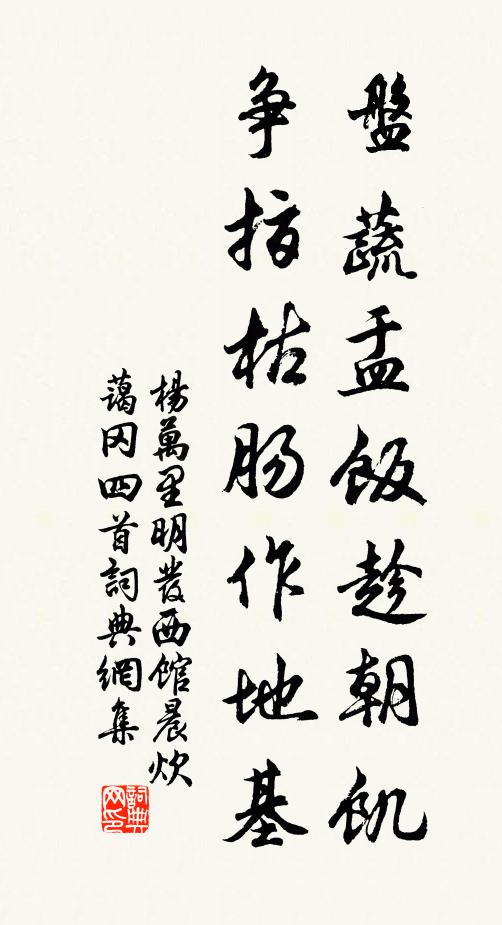 盤蔬盂飯趁朝飢
争指枯肠作地基
楊萬里明發西館晨炊
藹冈四首詞典網集
詞典
网印